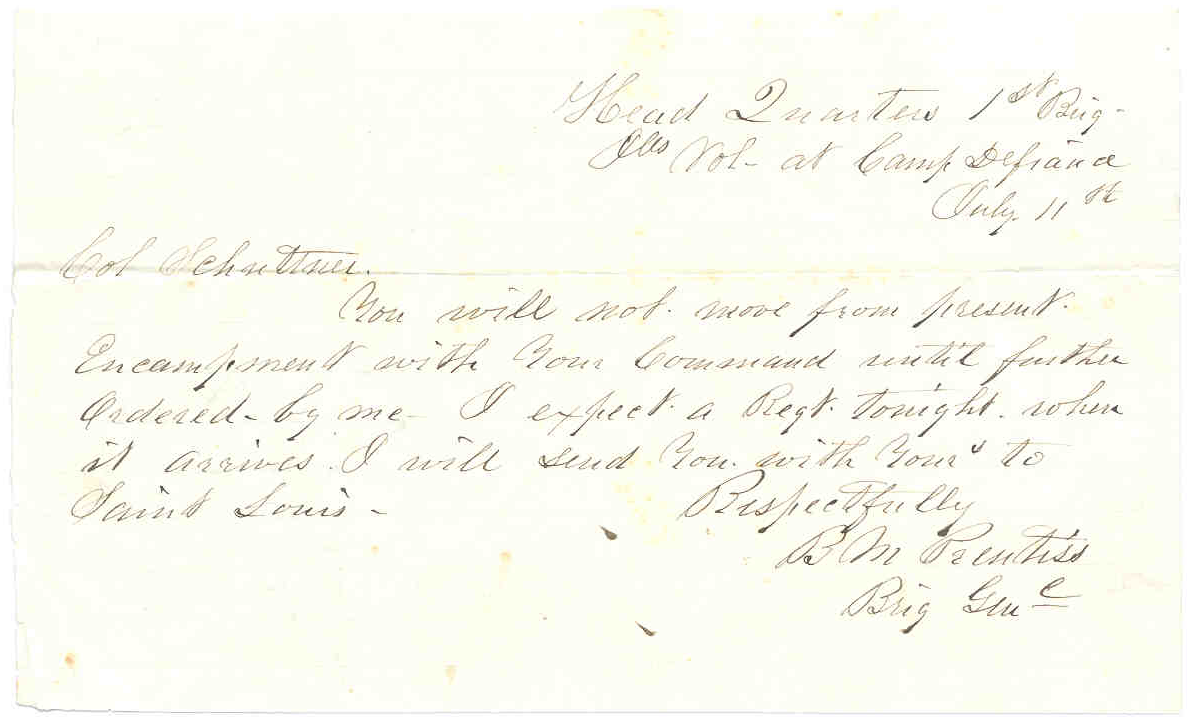 Head Quarters 1st Brig-
Ills Vol- at Camp Defiance
July 11th
Col Schuttner.
You will not. move from present.
Encampment with Your Command until further
Ordered- by me- I expect. a Regt. tonight. when
it arrives. I will send You. with Yours to
Saint Louis-
Respectfully
B M Prentiss
Brig Genl